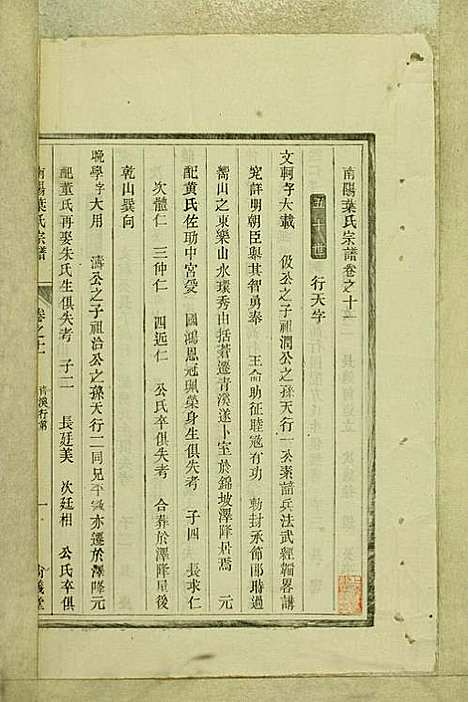 南陽葉氏宗譜卷之十一
五十世 行天字
文軻字大載 伋公之子祖潤公之孫天行一公素諳兵法武經韜畧講
究詳明朝臣舉其智勇奉 王命助征睦寇有功 勅封承節郎時過
嵩山之東樂山水環秀由括蒼遷青溪遂卜室於錦坡澤隆居焉 元
配黄氏佐助中宮愛 國鴻恩冠珮榮身生俱失考 子四 長求仁
次體仁 三仲仁 四远仁 公氏卒俱失考 合葬於澤隆屋後
乾山巽向
晚學字大用 濤公之子祖治公之孫天行二同兄平寇亦遷於澤隆元
配董氏再娶朱氏生俱失考 子二 長廷美 次廷相 公氏卒俱
南陽葉氏宗譜 卷之十一 青溪行第 一